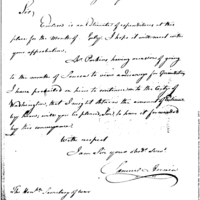 Sir,
Enclosed is an Estimate of expenditures at this
place for the month of July. I hope it will meet with
your approbation.
Mr. Perkins having occasion of going
to the mouth of Seneca to view a
I have prevailed on him to continue on to the City of
Washington, that I might obtain the amount of Estimate
by him, will you be pleased, Sir, to have it forwarded
by this conveyance?
With respect
I am Sir your obedt. Servt.
The Honble. Secretary of war